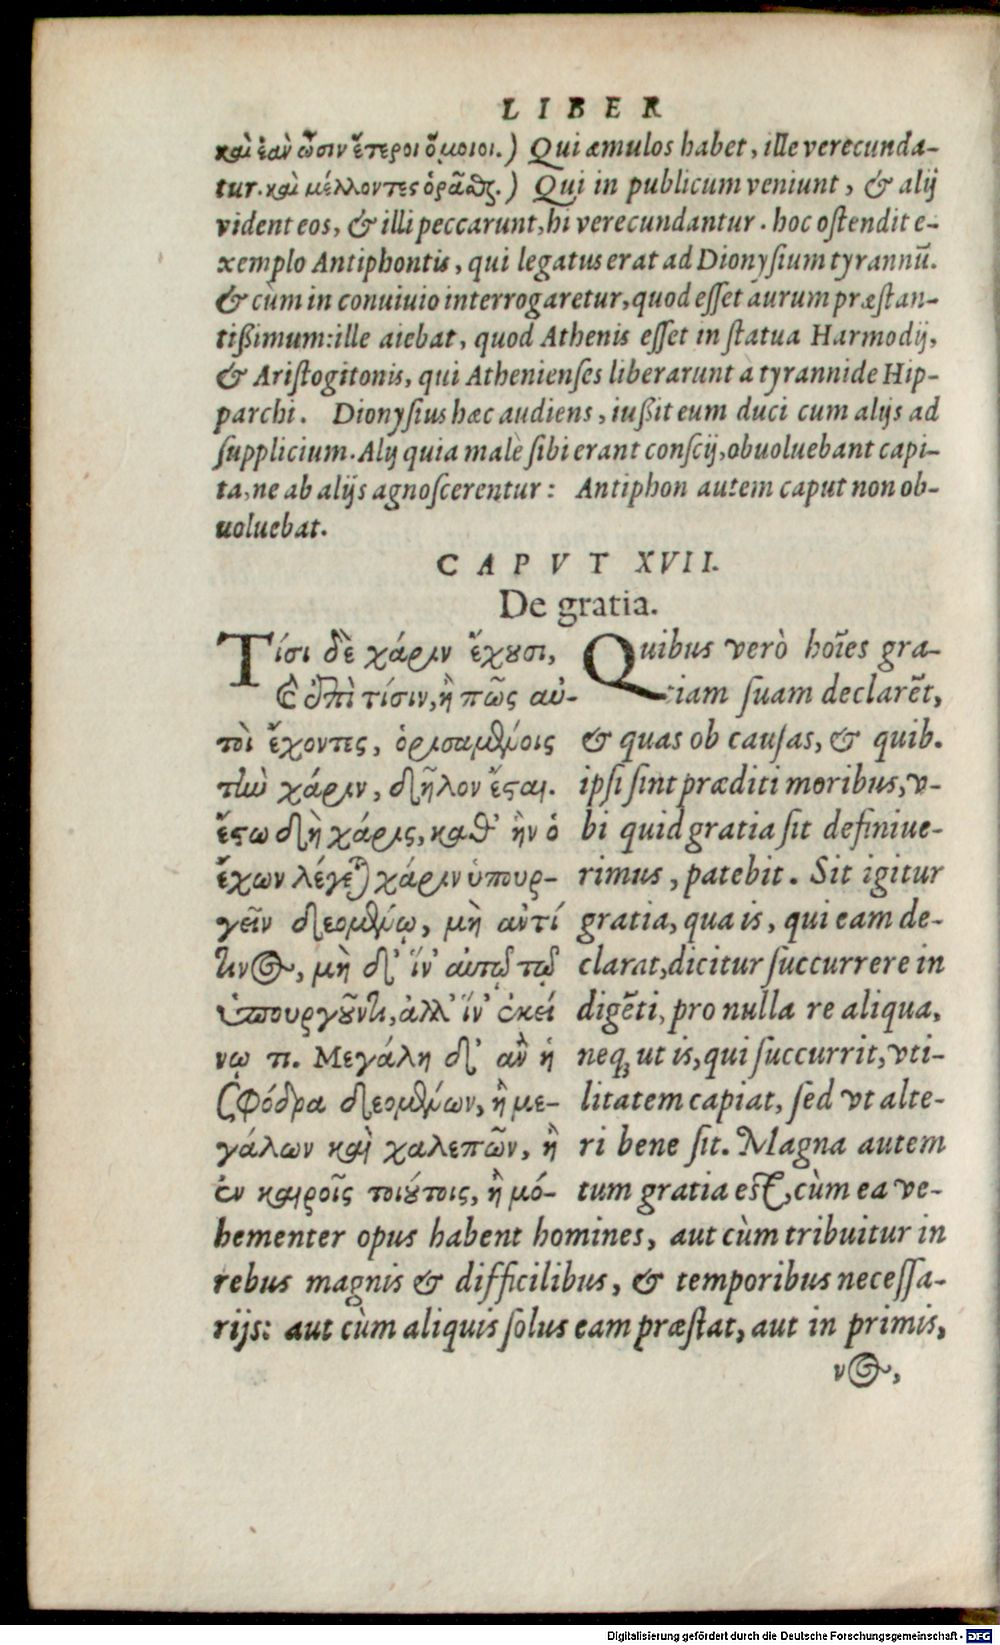 LIBER
καὶ ἐὰν ὦσιν ἕτεροι ὅμοιοι.) Qui æmulos habet, ille verecunda-
tur. καὶ μέλλοντες ὁρᾶσθαι.) Qui in publicum veniunt, & alij
vident eos, & illi peccarunt, hi verecundantur. hoc oſtendit e-
xemplo Antiphontis, qui legatus erat ad Dionyſium tyrannū.
& cùm in conuiuio interrogaretur, quod eſſet aurum præſtan-
tißimum: ille aiebat, quod Athenis eſſet in ſtatua Harmodij,
& Ariſtogitonis, qui Athenienſes liberarunt à tyrannide Hip-
parchi. Dionyſius hæc audiens, iußit eum duci cum alijs ad
ſupplicium. Alij quia malè ſibi erant conſcij, obuoluebant capi-
ta, ne ab alijs agnoſcerentur: Antiphon autem caput non ob-
uoluebat.
CAPVT XVII.
De gratia.
Τίσι δὲ χάριν ἔχουσι,
καὶ ἐπὶ τίσιν, ἢ πῶς αὐ-
τοὶ ἔχοντες, ὁρισαμένοις
τὴν χάριν, δῆλον ἔσται.
ἔστω δὴ χάρις, καθ᾽ ἣν ὁ
ἔχων λέγεται χάριν ὑπουρ-
γεῖν δεομένῳ, μὴ ἀντί
τινος, μὴ δ᾽ ἵν᾽ αὐτῷ τῷ
ὑπουργοῦντι, ἀλλ᾽ ἵν᾽ ἐκεί
νῳ τι. Μεγάλη δ᾽ ἂν ἡ
σφόδρα δεομένων, ἢ με-
γάλων καὶ χαλεπῶν, ἢ
ἐν καιροῖς τοιούτοις, ἢ μό-
Quibus verò hoīes gra-
tiam ſuam declarēt,
& quas ob cauſas, & quib.
ipſi ſint præditi moribus, v-
bi quid gratia ſit definiue-
rimus, patebit. Sit igitur
gratia, qua is, qui eam de-
clarat, dicitur ſuccurrere in
digēti, pro nulla re aliqua,
neq; ut is, qui ſuccurrit, vti-
litatem capiat, ſed vt alte-
ri bene ſit. Magna autem
tum gratia est, cùm ea ve-
hementer opus habent homines, aut cùm tribuitur in
rebus magnis & difficilibus, & temporibus neceſſa-
rijs: aut cùm aliquis ſolus eam præſtat, aut in primis,
νος,
Digitalisierung gefördert durch die Deutsche Forschungsgemeinschaft - DFG